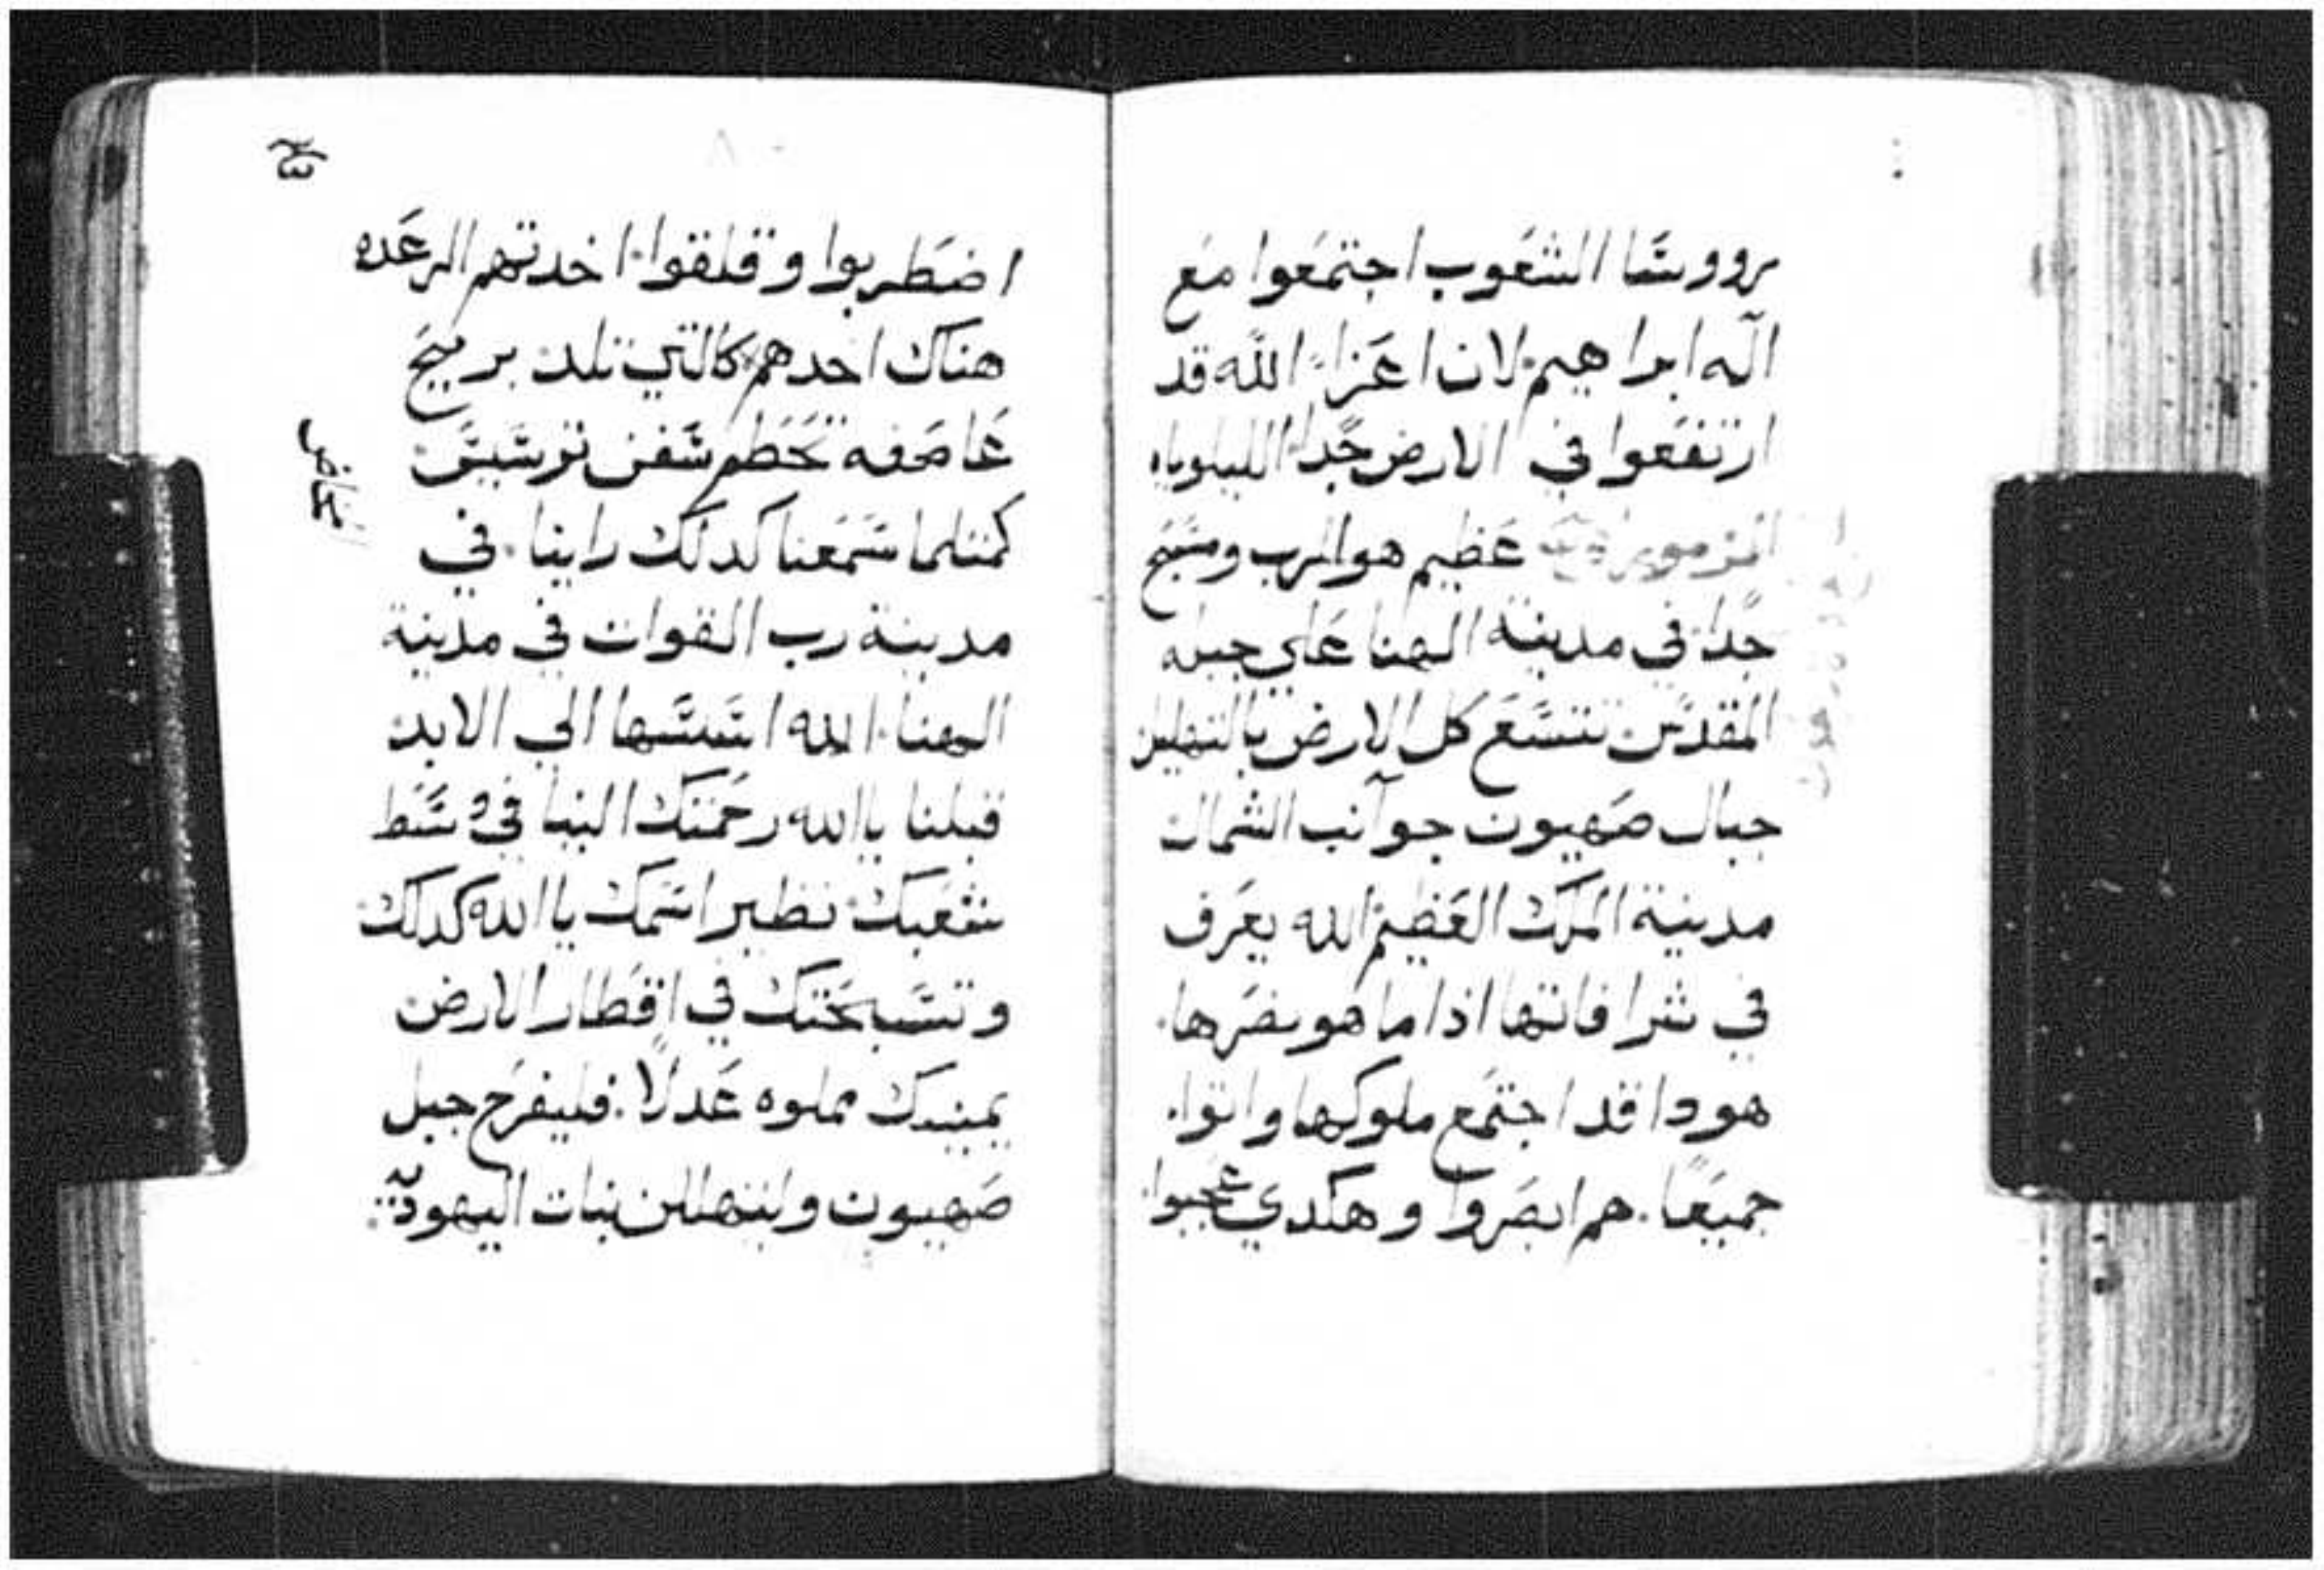 رووسا الشعوب اجتمعوا مع
اله ابراهيم لان اعزا الله قد
ارتفعوا في الارض جدا الليلوياه
المزمور عظيم هو الرب ومسبح
جدا في مدينة الهنا علي جبله
المقدس تتسع كل الارض بالتهليل
جبال صهيون جوانب الشمال
مدينة الملك العظيم الله يعرف
في شرافاتها اذا ما هو ينصرها.
هودا قد اجتمع ملوكها واتوا.
جميعا. هم ابصروا وهكدي عجبوا
اضطربوا وقلقوا اخدتهم الرعده
هناك اخدهم كالتي تلد بريح
عاصفه تحطم سفن ترسيس
كمتلما سمعنا كدلك راينا. في
مدينة رب القوات في مدينة
الهنا. الله اسسها الي الابد
قبلنا ياالله رحمتك البنا في وسط
شعبك نظير اسمك ياالله كدلك
وتسبحتك في اقطار الارض
يمينك مملوه عدلا. فليفرح جبل
صهيون وليتهللن بنات اليهوديه